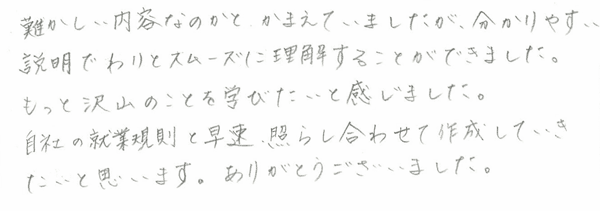 難かしい内容なのかと、かまえていましたが、分かりやすい
説明でわりとスムーズに理解することができました。
もっと沢山のことを学びたいと感じました。
自社の就業規則と早速、照らし合わせて作成していき
たいと思います。ありがとうございました。